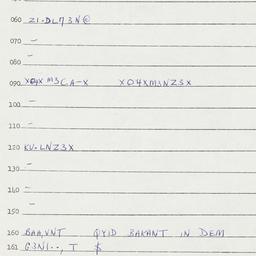 060 ZI-DL73N@
070 —
—
080
090 X04X M3CA-X X04XM3NZ3X
—
100
—
110
—
120 KU-LNZ3X
130 —
140 —
—
150
160 BAA,VNT QYID BAKANT IN DEM
161 G3NI··, T $